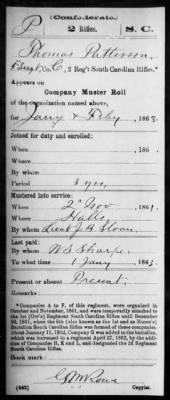 (Confederate.)
P 2 Rifles. S.C.
Thomas Patterson
1 Sergt, Co. C, 2 Reg't South Carolina Rifles.*
Appears on
Company Muster Roll
of the organization named above,
for Jany & Feby, 1863.
Joined for duty and enrolled:
When , 186 .
Where
By whom
Period 3 yrs.
Mustered into service:
When 2 Nov, 1861.
Where Halls
By whom Lieut J. B. Sloan
Last paid:
By whom W S Sharpe
To what time 1 Jany, 1863.
Present or absent Present
Remarks:
*Companies A to F, of this regiment, were organized in
October and November, 1861, and were temporarily attached to
the 1st (Orr's) Regiment South Carolina Rifles until December
20, 1861, when the 5th (also known as the 1st and as Moore's)
Battalion South Carolina Rifles was formed of these companies.
About January 11, 1862, Company G was added to the battalion,
which was increased to a regiment April 27, 1862, by the addition
of Companies H, K and L, and designated the 2d Regiment
South Carolina Rifles.
Book mark:
(642) Copyist.